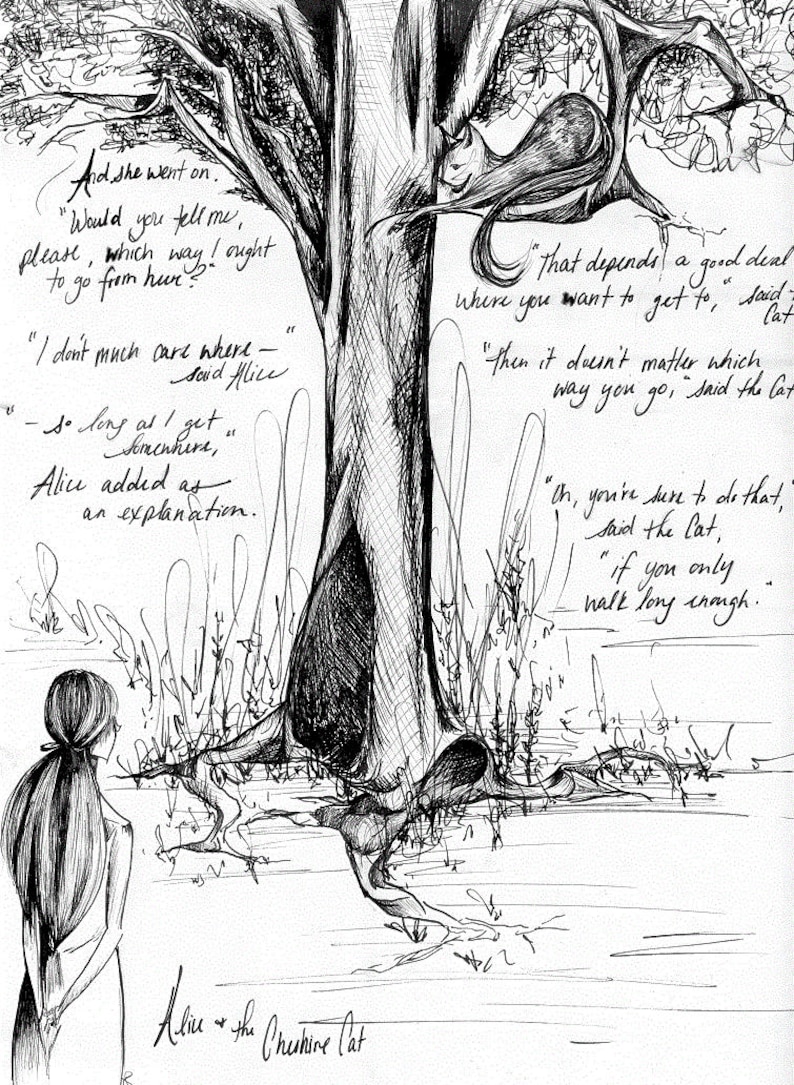 And she went on.
"Would you tell me,
please, which way I ought
to go from here?"
"That depends a good deal
where you want to get to," said
Cat
"I don't much care where — "
said Alice
"Then it doesn't matter which
way you go," said the Cat
"— so long as I get
somewhere,"
Alice added as
an explanation.
"Oh, you're sure to do that,"
said the Cat,
"if you only
walk long enough."
Alice & the
Cheshire Cat
R